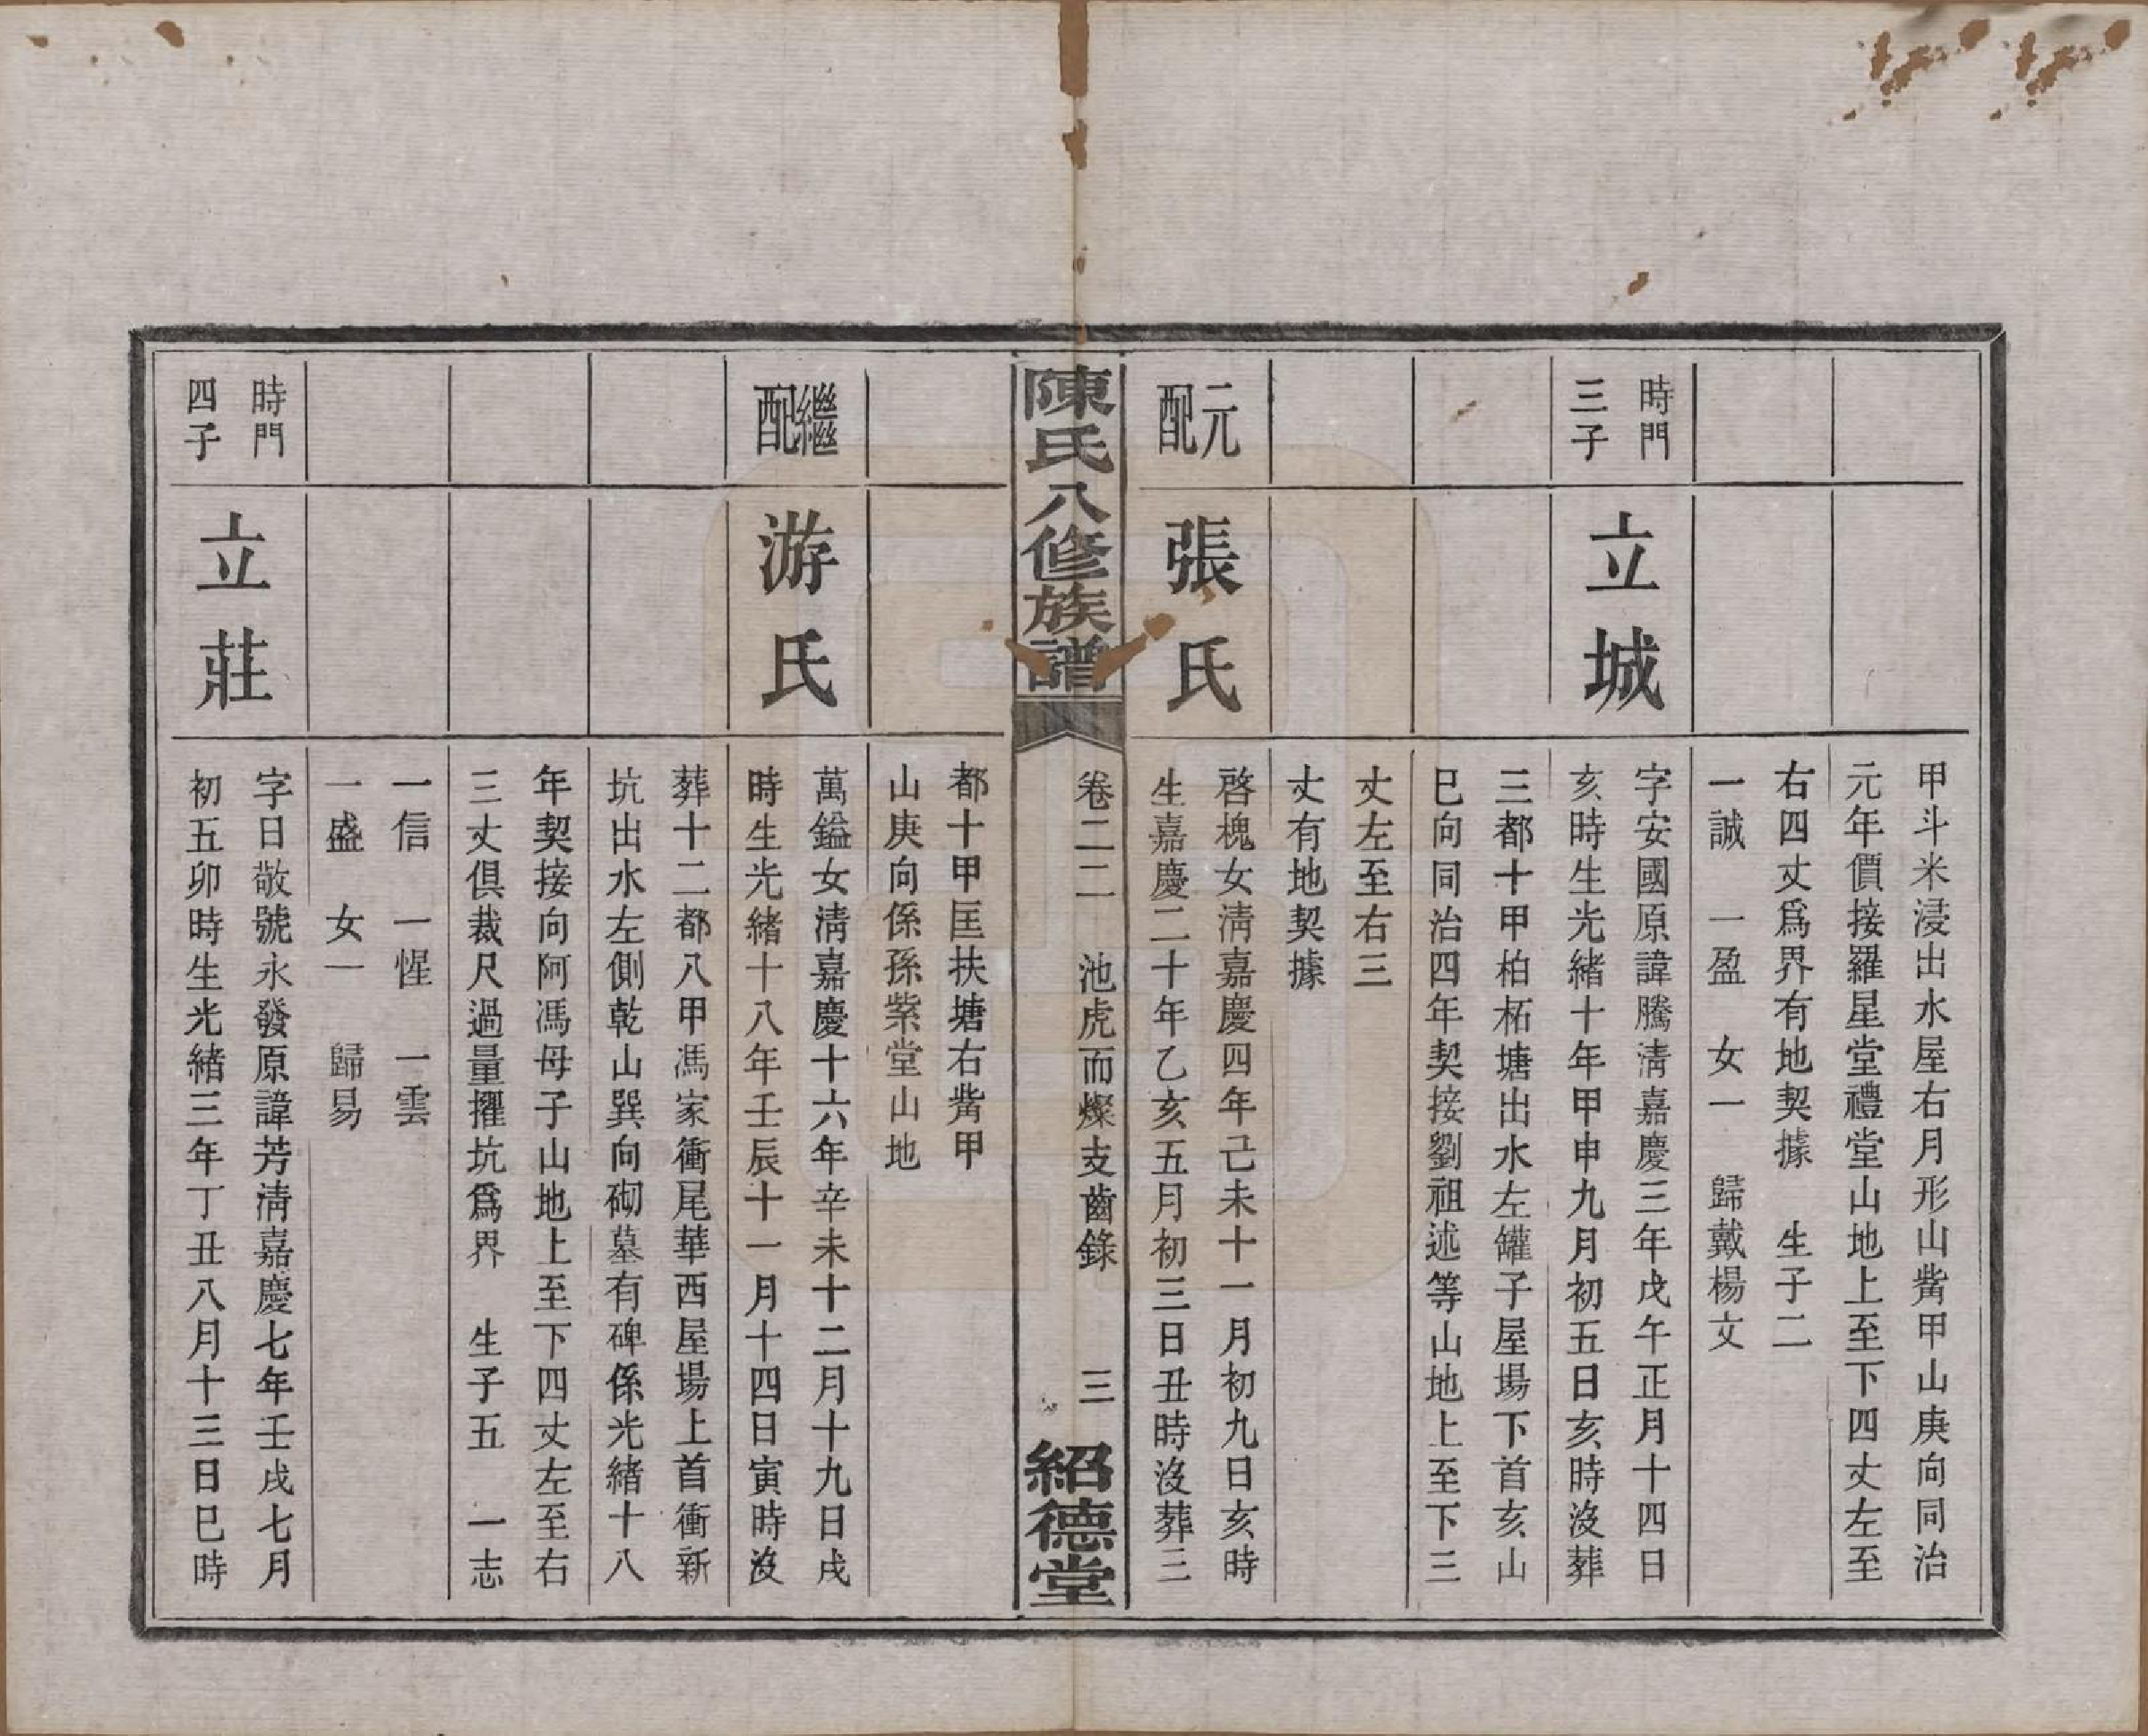 甲斗米浸出水屋右月形山觜甲山庚向同治
元年價接羅星堂禮堂山地上至下四丈左至
右四丈爲界有地契據 生子二
一誠 一盈 女一 歸戴楊文
時門
三子
立城
字安國原諱騰淸嘉慶三年戊午正月十四日
亥時生光緒十年甲申九月初五日亥時沒葬
三都十甲柏柘塘出水左罐子屋場下首亥山
巳向同治四年契接劉祖述等山地上至下三
丈左至右三
丈有地契據
元配
張氏
啓槐女淸嘉慶四年己未十一月初九日亥時
生嘉慶二十年乙亥五月初三日丑時沒葬三
陳氏八修族譜
卷二二 池虎而燦支齒錄 三
紹德堂
都十甲匡扶塘右觜甲
山庚向係孫紫堂山地
繼配
游氏
萬鎰女淸嘉慶十六年辛未十二月十九日戌
時生光緒十八年壬辰十一月十四日寅時沒
葬十二都八甲馮家衝尾華西屋場上首衝新
坑出水左側乾山巽向砌墓有碑係光緒十八
年契接向阿馮母子山地上至下四丈左至右
三丈俱裁尺過量擢坑爲界 生子五 一志
一信 一惺 一雲
一盛 女一 歸易
時門
四子
立莊
字日敬號永發原諱芳淸嘉慶七年壬戌七月
初五卯時生光緒三年丁丑八月十三日巳時